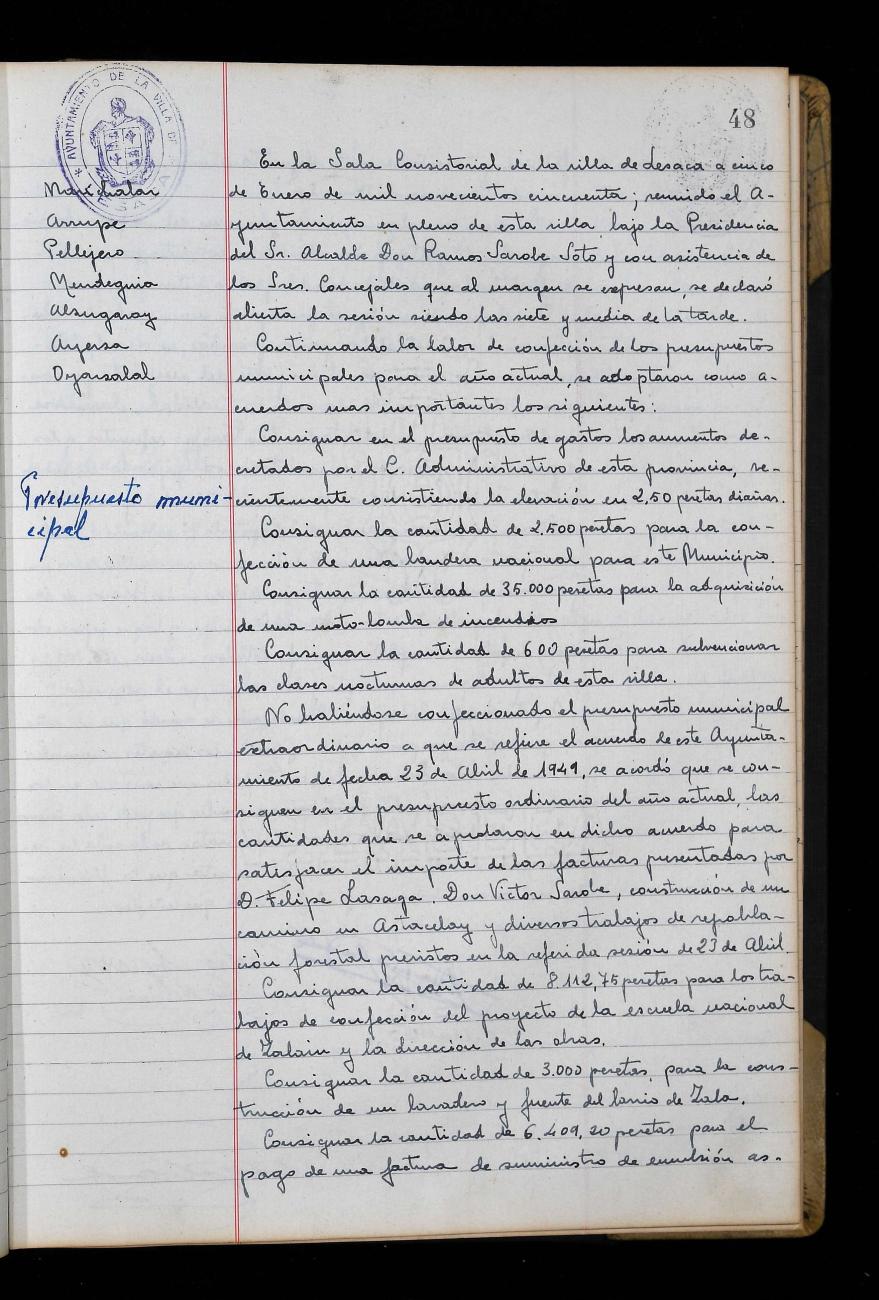 48
AYUNTAMIENTO DE LA VILLA DE LESACA
Marichalar
Arrupe
Pellejero
Mendeguia
Alzugaray
Ayersa
Oyarzabal
Presupuesto muni-
cipal
En la Sala Consistorial de la villa de Lesaca a cinco
de Enero de mil novecientos cincuenta; reunido el A-
yuntamiento en pleno de esta villa bajo la Presidencia
del Sr. Alcalde Don Ramos Sarobe Soto y con asistencia de
los Sres. Concejales que al margen se expresan, se declaró
abierta la sesión siendo las siete y media de la tarde.
Continuando la labor de confección de los presupuestos
municipales para el año actual, se adoptaron como a-
cuerdos mas importantes los siguientes:
Consignar en el presupuesto de gastos los aumentos de-
cretados por el C. Administrativo de esta provincia, re-
cientemente consistiendo la elevación en 2,50 pesetas diarias.
Consignar la cantidad de 2.500 pesetas para la con-
fección de una bandera nacional para este Municipio.
Consignar la cantidad de 35.000 pesetas para la adquisición
de una moto-bomba de incendios
Consignar la cantidad de 600 pesetas para subvencionar
las clases nocturnas de adultos de esta villa.
No habiéndose confeccionado el presupuesto municipal
extraordinario a que se refiere el acuerdo de este Ayunta-
miento de fecha 23 de Abril de 1949, se acordó que se con-
siguen en el presupuesto ordinario del año actual, las
cantidades que se aprobaron en dicho acuerdo para
satisfacer el importe de las facturas presentadas por
D. Felipe Lasaga. Don Victor Sarobe, construcción de un
camino en Astacelay y diversos trabajos de repobla-
ción forestal previstos en la referida sesión de 23 de Abril.
Consignar la cantidad de 8.112,75 pesetas para los tra-
bajos de confección del proyecto de la escuela nacional
de Zalain y la dirección de las obras.
Consignar la cantidad de 3.000 pesetas, para la cons-
trucción de un lavadero y fuente del barrio de Zala.
Consignar la cantidad de 6.409,20 pesetas para el
pago de una factura de suministro de emulsión as-